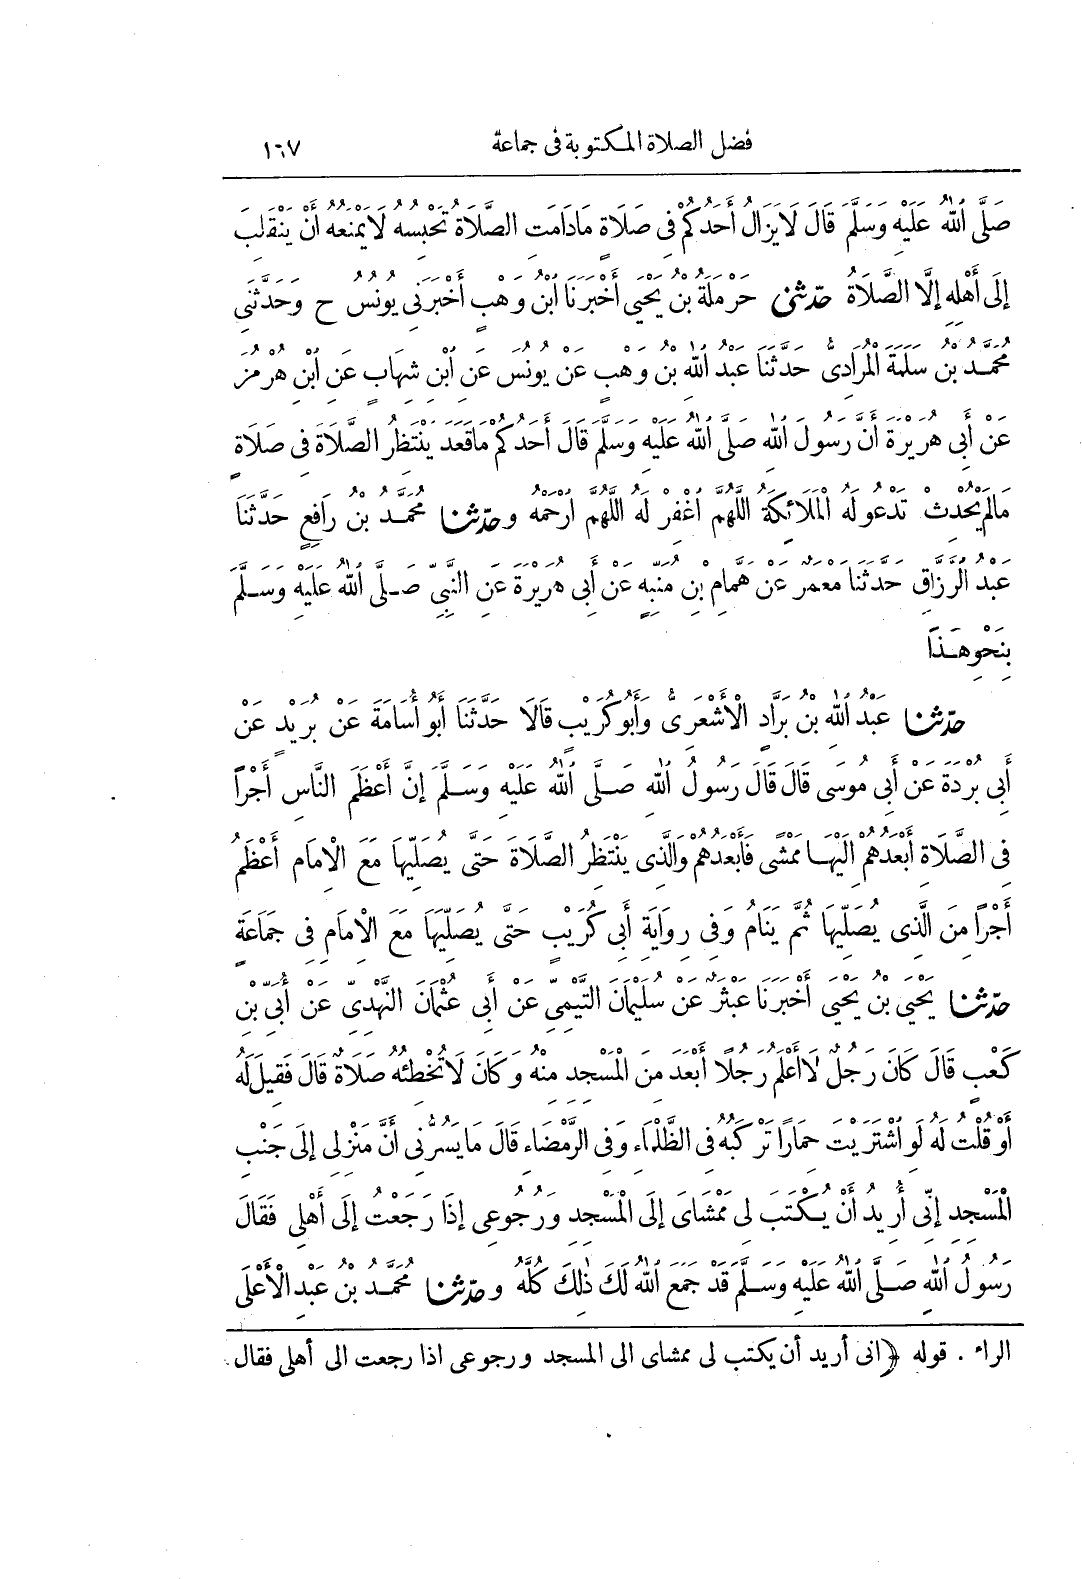 فضل الصلاة المكتوبة فى جماعة ١٦٧
صَلَّى اللهُ عَلَيْهِ وَسَلَّمَ قَالَ لَا يَزَالُ أَحَدُكُمْ فِى صَلَاةٍ مَادَامَتِ الصَّلَاةُ تَحْبِسُهُ لَا يَمْنَعُهُ أَنْ يَنْقَلِبَ
إِلَى أَهْلِهِ إِلَّا الصَّلَاةُ حدّثنى حَرْمَلَةُ بْنُ يَحْيَى أَخْبَرَنَا ابْنُ وَهْبٍ أَخْبَرَنِى يُونُسُ ح وَحَدَّثَنِى
مُحَمَّدُ بْنُ سَلَمَةَ الْمُرَادِىُّ حَدَّثَنَا عَبْدُ اللهِ بْنُ وَهْبٍ عَنْ يُونُسَ عَنِ ابْنِ شِهَابٍ عَنِ ابْنِ هُرْمُزَ
عَنْ أَبِى هُرَيْرَةَ أَنَّ رَسُولَ اللهِ صَلَّى اللهُ عَلَيْهِ وَسَلَّمَ قَالَ أَحَدُكُمْ مَاقَعَدَ يَنْتَظِرُ الصَّلَاةَ فِى صَلَاةٍ
مَالَمْ يُحْدِثْ تَدْعُو لَهُ الْمَلَائِكَةُ اللَّهُمَّ اغْفِرْ لَهُ اللَّهُمَّ ارْحَمْهُ وحدّثنا مُحَمَّدُ بْنُ رَافِعٍ حَدَّثَنَا
عَبْدُ الرَّزَّاقِ حَدَّثَنَا مَعْمَرٌ عَنْ هَمَّامِ بْنِ مُنَبِّهٍ عَنْ أَبِى هُرَيْرَةَ عَنِ النَّبِىِّ صَلَّى اللهُ عَلَيْهِ وَسَلَّمَ
بِنَحْوِ هَذَا
حدّثنا عَبْدُ اللهِ بْنُ بَرَّادٍ الْأَشْعَرِىُّ وَأَبُو كُرَيْبٍ قَالَا حَدَّثَنَا أَبُو أُسَامَةَ عَنْ بُرَيْدٍ عَنْ
أَبِى بُرْدَةَ عَنْ أَبِى مُوسَى قَالَ قَالَ رَسُولُ اللهِ صَلَّى اللهُ عَلَيْهِ وَسَلَّمَ إِنَّ أَعْظَمَ النَّاسِ أَجْرًا
فِى الصَّلَاةِ أَبْعَدُهُمْ إِلَيْهَا مَمْشًى فَأَبْعَدُهُمْ وَالَّذِى يَنْتَظِرُ الصَّلَاةَ حَتَّى يُصَلِّيَهَا مَعَ الْإِمَامِ أَعْظَمُ
أَجْرًا مِنَ الَّذِى يُصَلِّيهَا ثُمَّ يَنَامُ وَفِى رِوَايَةِ أَبِى كُرَيْبٍ حَتَّى يُصَلِّيَهَا مَعَ الْإِمَامِ فِى جَمَاعَةٍ
حدّثنا يَحْيَى بْنُ يَحْيَى أَخْبَرَنَا عَبْثَرٌ عَنْ سُلَيْمَانَ التَّيْمِىِّ عَنْ أَبِى عُثْمَانَ النَّهْدِىِّ عَنْ أُبَىِّ بْنِ
كَعْبٍ قَالَ كَانَ رَجُلٌ لَا أَعْلَمُ رَجُلًا أَبْعَدَ مِنَ الْمَسْجِدِ مِنْهُ وَكَانَ لَا تُخْطِئُهُ صَلَاةٌ قَالَ فَقِيلَ لَهُ
أَوْ قُلْتُ لَهُ لَوِ اشْتَرَيْتَ حِمَارًا تَرْكَبُهُ فِى الظَّلْمَاءِ وَفِى الرَّمْضَاءِ قَالَ مَا يَسُرُّنِى أَنَّ مَنْزِلِى إِلَى جَنْبِ
الْمَسْجِدِ إِنِّى أُرِيدُ أَنْ يُكْتَبَ لِى مَمْشَاىَ إِلَى الْمَسْجِدِ وَرُجُوعِى إِذَا رَجَعْتُ إِلَى أَهْلِى فَقَالَ
رَسُولُ اللهِ صَلَّى اللهُ عَلَيْهِ وَسَلَّمَ قَدْ جَمَعَ اللهُ لَكَ ذٰلِكَ كُلَّهُ وحدّثنا مُحَمَّدُ بْنُ عَبْدِ الْأَعْلَى
الراء . قوله ﴿انى أريد أن يكتب لى ممشاى الى المسجد ورجوعى اذا رجعت الى أهلى فقال